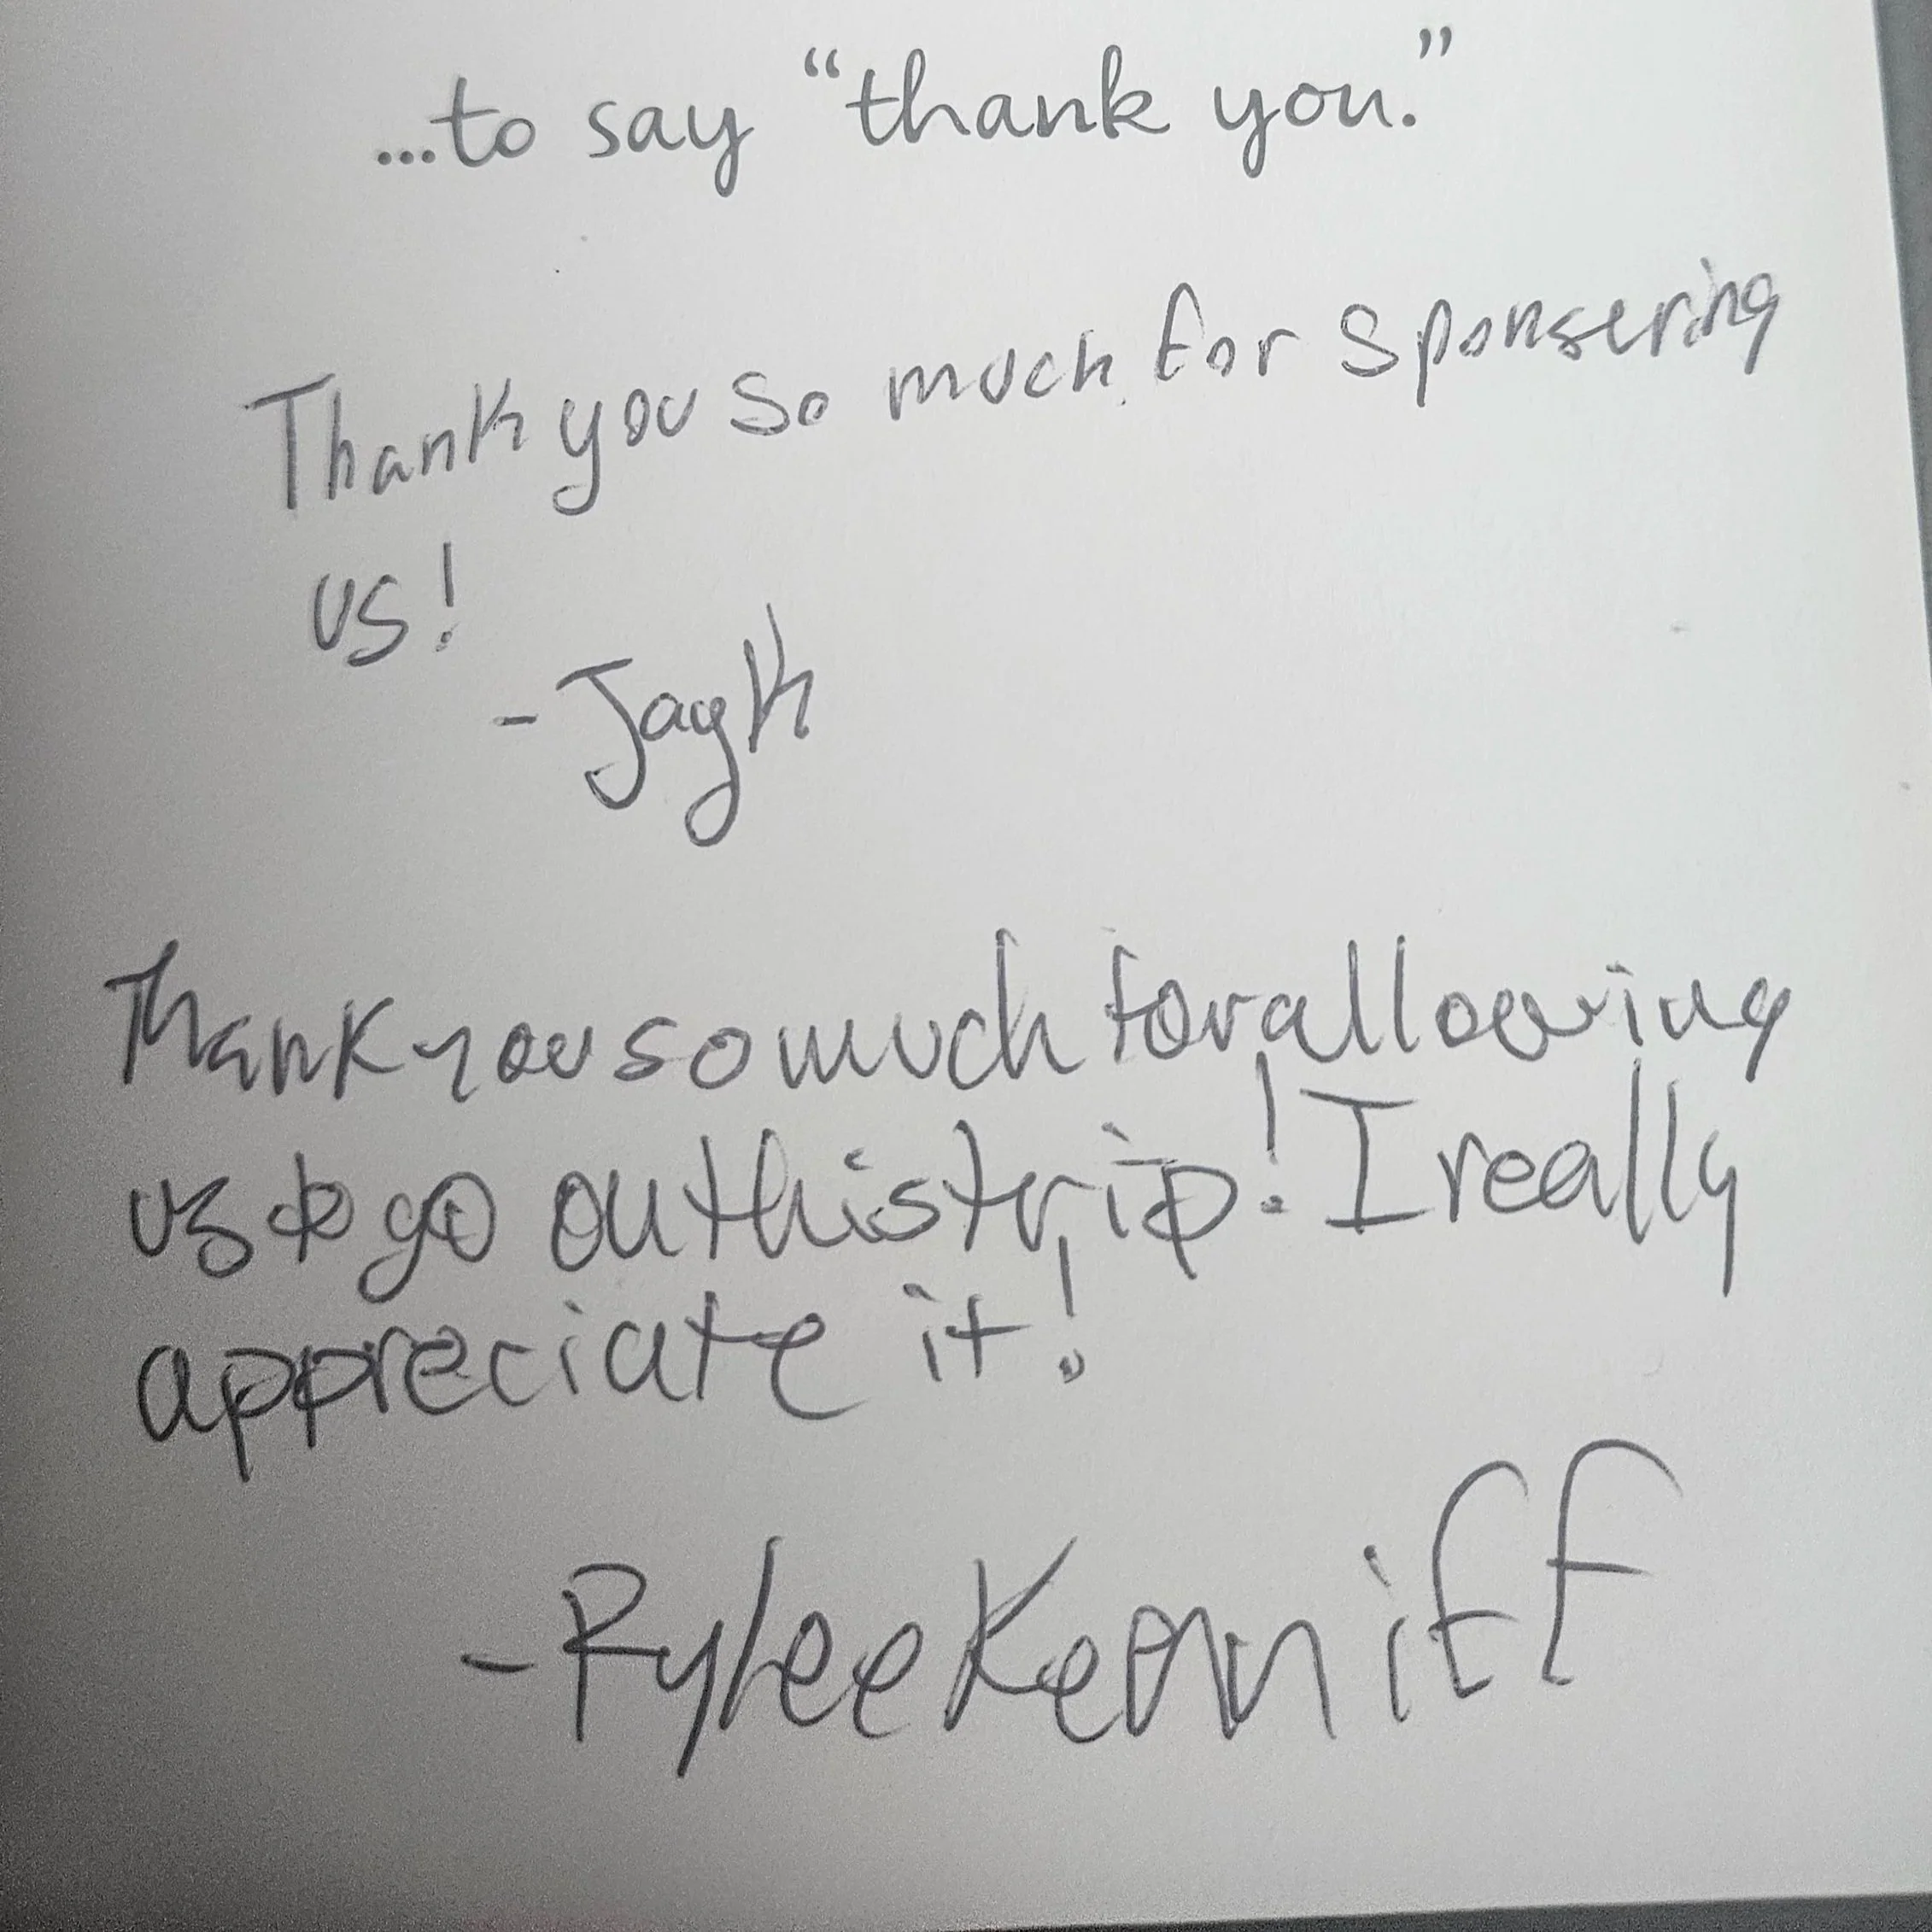 ...to say “thank you.”
Thank you so much for sponsering
us!
- Jay K
Thank you so much for allowing
us to go on this trip! I really
appreciate it!
- Rylee Kenniff